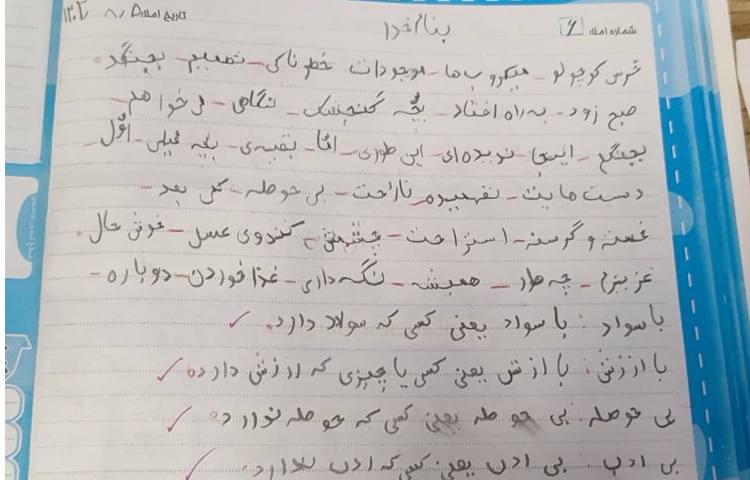 شماره املا: ۶
تاریخ املا: ۸/۵
بنام خدا
خرس کوچولو - میکروب ها - موجودات خطرناکی - تصمیم - بجنگد.
صبح زود - به راه افتاد - بچّه گنجشک - نگاهی - می خواهم -
بجنگم - اینجا - نوبده ای - این طوری - امّا - بقیه ی - بچّه فیلی - اوّل -
دست هایت - نفهمیده - ناراحت - بی حوصله - کمی بعد -
خسته و گرسنه - استراحت - چشمش - کندوی عسل - خوش حال.
عزیزم - چه طور - همیشه - نگه داری - غذا خوردن - دوباره -
با سواد: با سواد یعنی کسی که سواد دارد.
با ارزش: با ارزش یعنی کسی یا چیزی که ارزش دارد.
بی حوصله: بی حوصله یعنی کسی که حوصله ندارد.
بی ادب: بی ادب یعنی کسی که ادب ندارد.